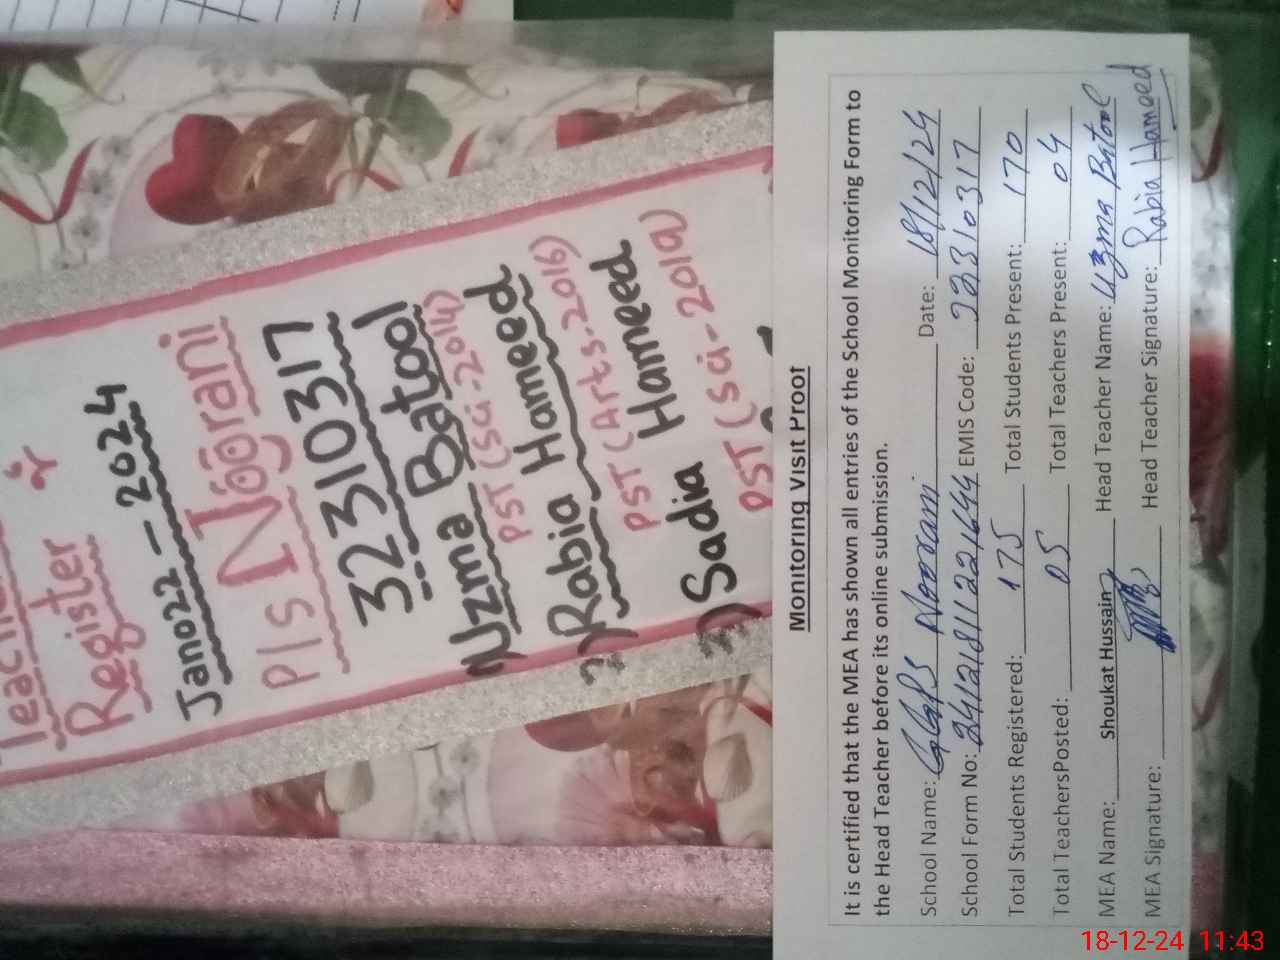 Register
Jan 2022 — 2024
P/s Nograni
32310317
1) Uzma Batool
PST (Sci-2014)
2) Rabia Hameed
PST (Arts-2016)
3) Sadia Hameed
PST (Sci-2019)
Monitoring Visit Proof
It is certified that the MEA has shown all entries of the School Monitoring Form to
the Head Teacher before its online submission.
School Name: GGPS Date: 18/12/24
School Form No: EMIS Code: 32310317
Total Students Registered: 175 Total Students Present: 170
Total TeachersPosted: 05 Total Teachers Present: 04
MEA Name: Shoukat Hussain Head Teacher Name: Uzma Batool
MEA Signature: Head Teacher Signature: Rabia Hameed
18-12-24 11:43